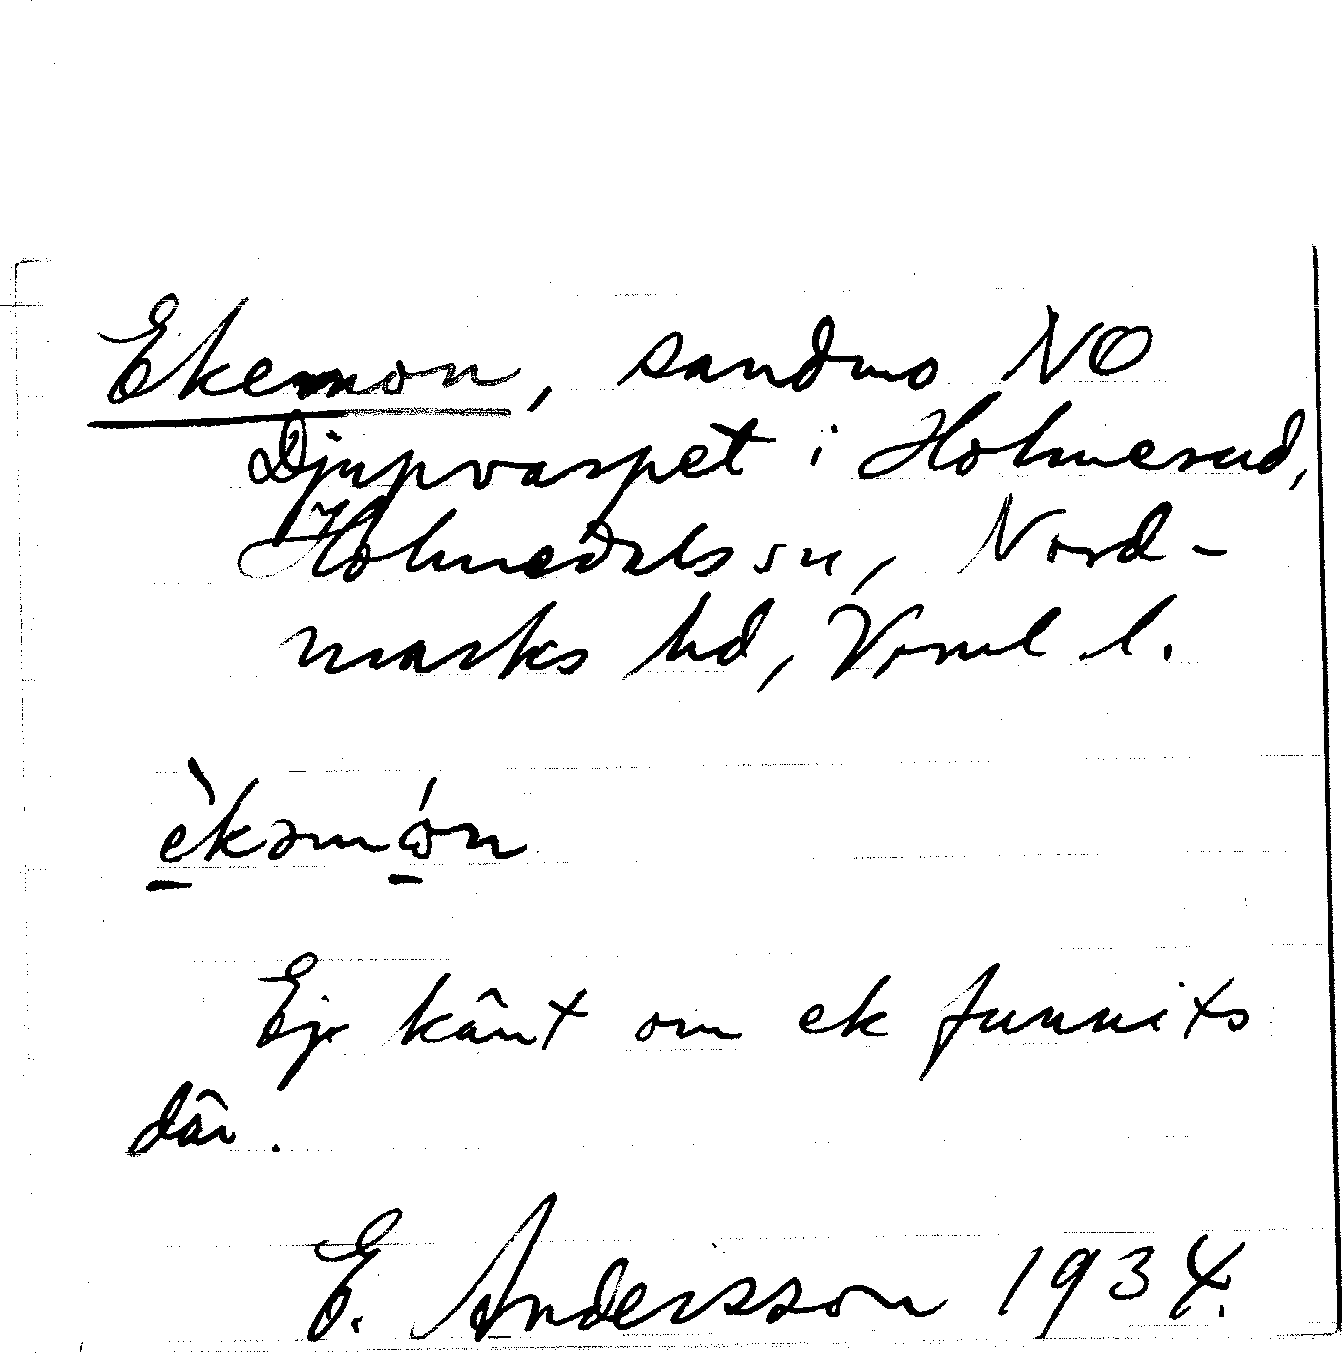 Ekemon, sandmo NO
Djupvarpet i Holmerud,
Holmedals sn, Nord-
marks hd, Vrml l.
èkəmón
Ej känt om ek funnits
där.
E. Andersson 1934.